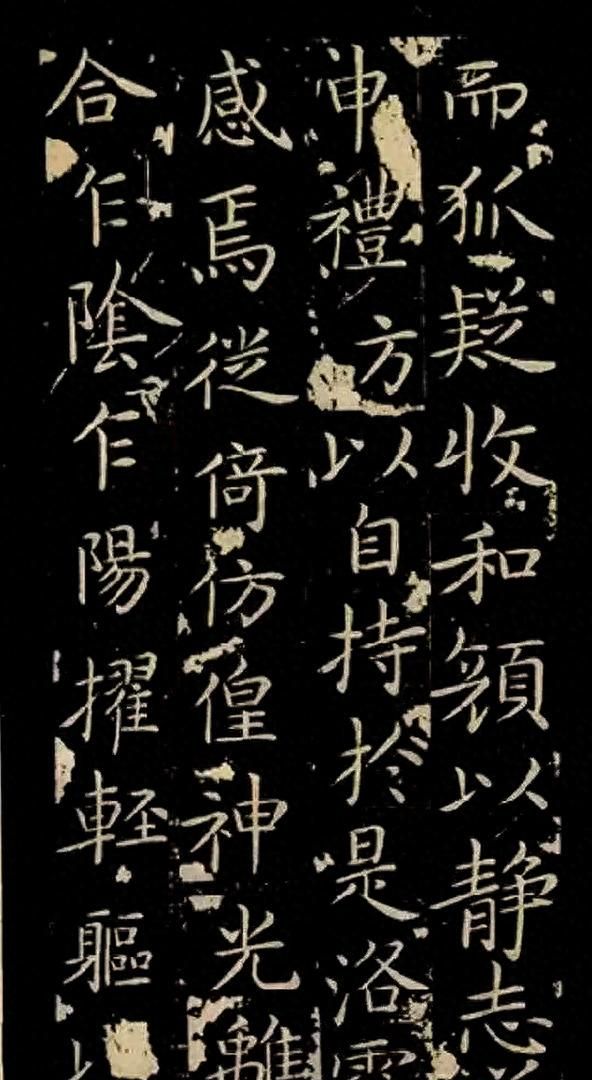 而狐疑收和顔以静志
申禮方以自持於是洛
感焉徙倚仿偟神光離
合乍陰乍陽擢輕軀